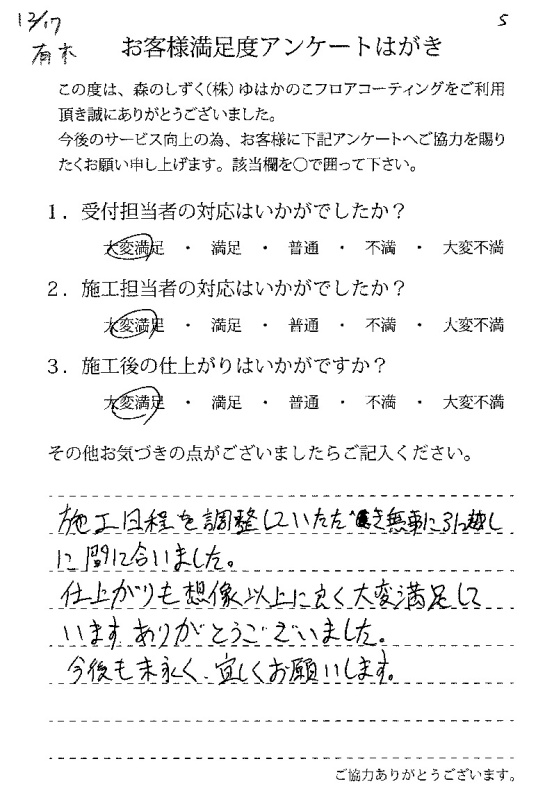 12/17
S
お客様満足度アンケートはがき
この度は、森のしずく(株)ゆはかのこフロアコーティングをご利用
頂き誠にありがとうございました。
今後のサービス向上の為、お客様に下記アンケートへご協力を賜り
たくお願い申し上げます。該当欄を〇で囲って下さい。
1．受付担当者の対応はいかがでしたか？
大変満足 ・ 満足 ・ 普通 ・ 不満 ・ 大変不満
2．施工担当者の対応はいかがでしたか？
大変満足 ・ 満足 ・ 普通 ・ 不満 ・ 大変不満
3．施工後の仕上がりはいかがですか？
大変満足 ・ 満足 ・ 普通 ・ 不満 ・ 大変不満
その他お気づきの点がございましたらご記入ください。
施工日程を調整していただき無事に引っ越し
に間に合いました。
仕上がりも想像以上に良く大変満足して
います。ありがとうございました。
今後も末永く、宜しくお願いします。
ご協力ありがとうございます。